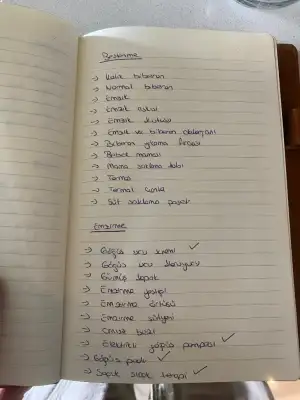 Beslenme
→ Kolik biberon
→ Normal biberon
→ Emzik
→ Emzik askısı
→ Emzik kutusu
→ Emzik ve biberon
→ Biberon yıkama fırçası
→ Bebek maması
→ Mama saklama kabı
→ Termos
→ Termal çanta
→ Süt saklama poşeti
Emzirme
→ Göğüs ucu kremi ✓
→ Göğüs ucu koruyucu
→ Gümüş kapak
→ Emzirme yastığı
→ Emzirme örtüsü
→ Emzirme sütyeni
→
→ Elektrikli göğüs pompası ✓
→ Göğüs pedi ✓
→ Soğuk sıcak terapi ✓